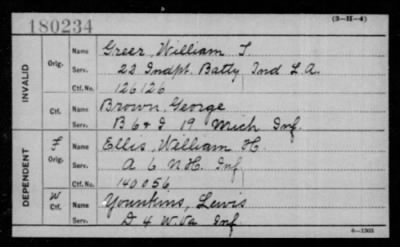 180234
(3—H—4)
INVALID
Orig.
Name Greer, William T.
Serv. 22 Indpt. Batty Ind L.A.
Ctf. No. 126126
Ctf.
Name Brown, George
Serv. B 6 & I 19 Mich Inf.
DEPENDENT
F
Orig.
Name Ellis, William H.
Serv. A 6 N.H. Inf
Ctf. No. 140056
W
Ctf.
Name Younkins, Lewis
Serv. D 4 W.Va Inf
6—1303